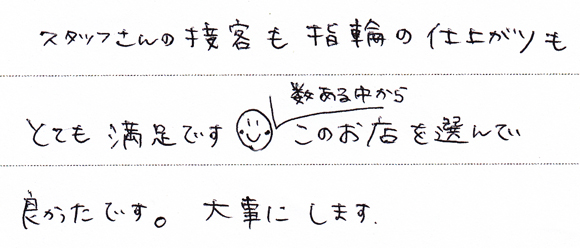 スタッフさんの接客も指輪の仕上がりも
数ある中から
とても満足です このお店を選んで
良かったです。大事にします.